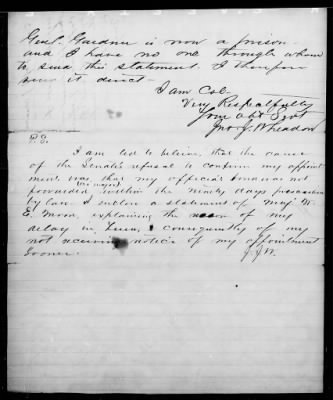 Genl. Gardner is now a prison.
and I have no one through whom
to send this statement. I therefore
send it direct—
I am Col—
Very Respectfully
Your obt Svt
Jno. G. Wheadon
P.S.
I am led to believe, that the cause
of the Senate's refusal to confirm my appoint
ment was, that my official bond was not
forwarded within the Ninety days prescribed
by law. I enclose a statement of Maj. W.
E. Moore, explaining the reason of my
delay in &c. consequently of my
not receiving notice of my appointment
sooner.
J.G.W.